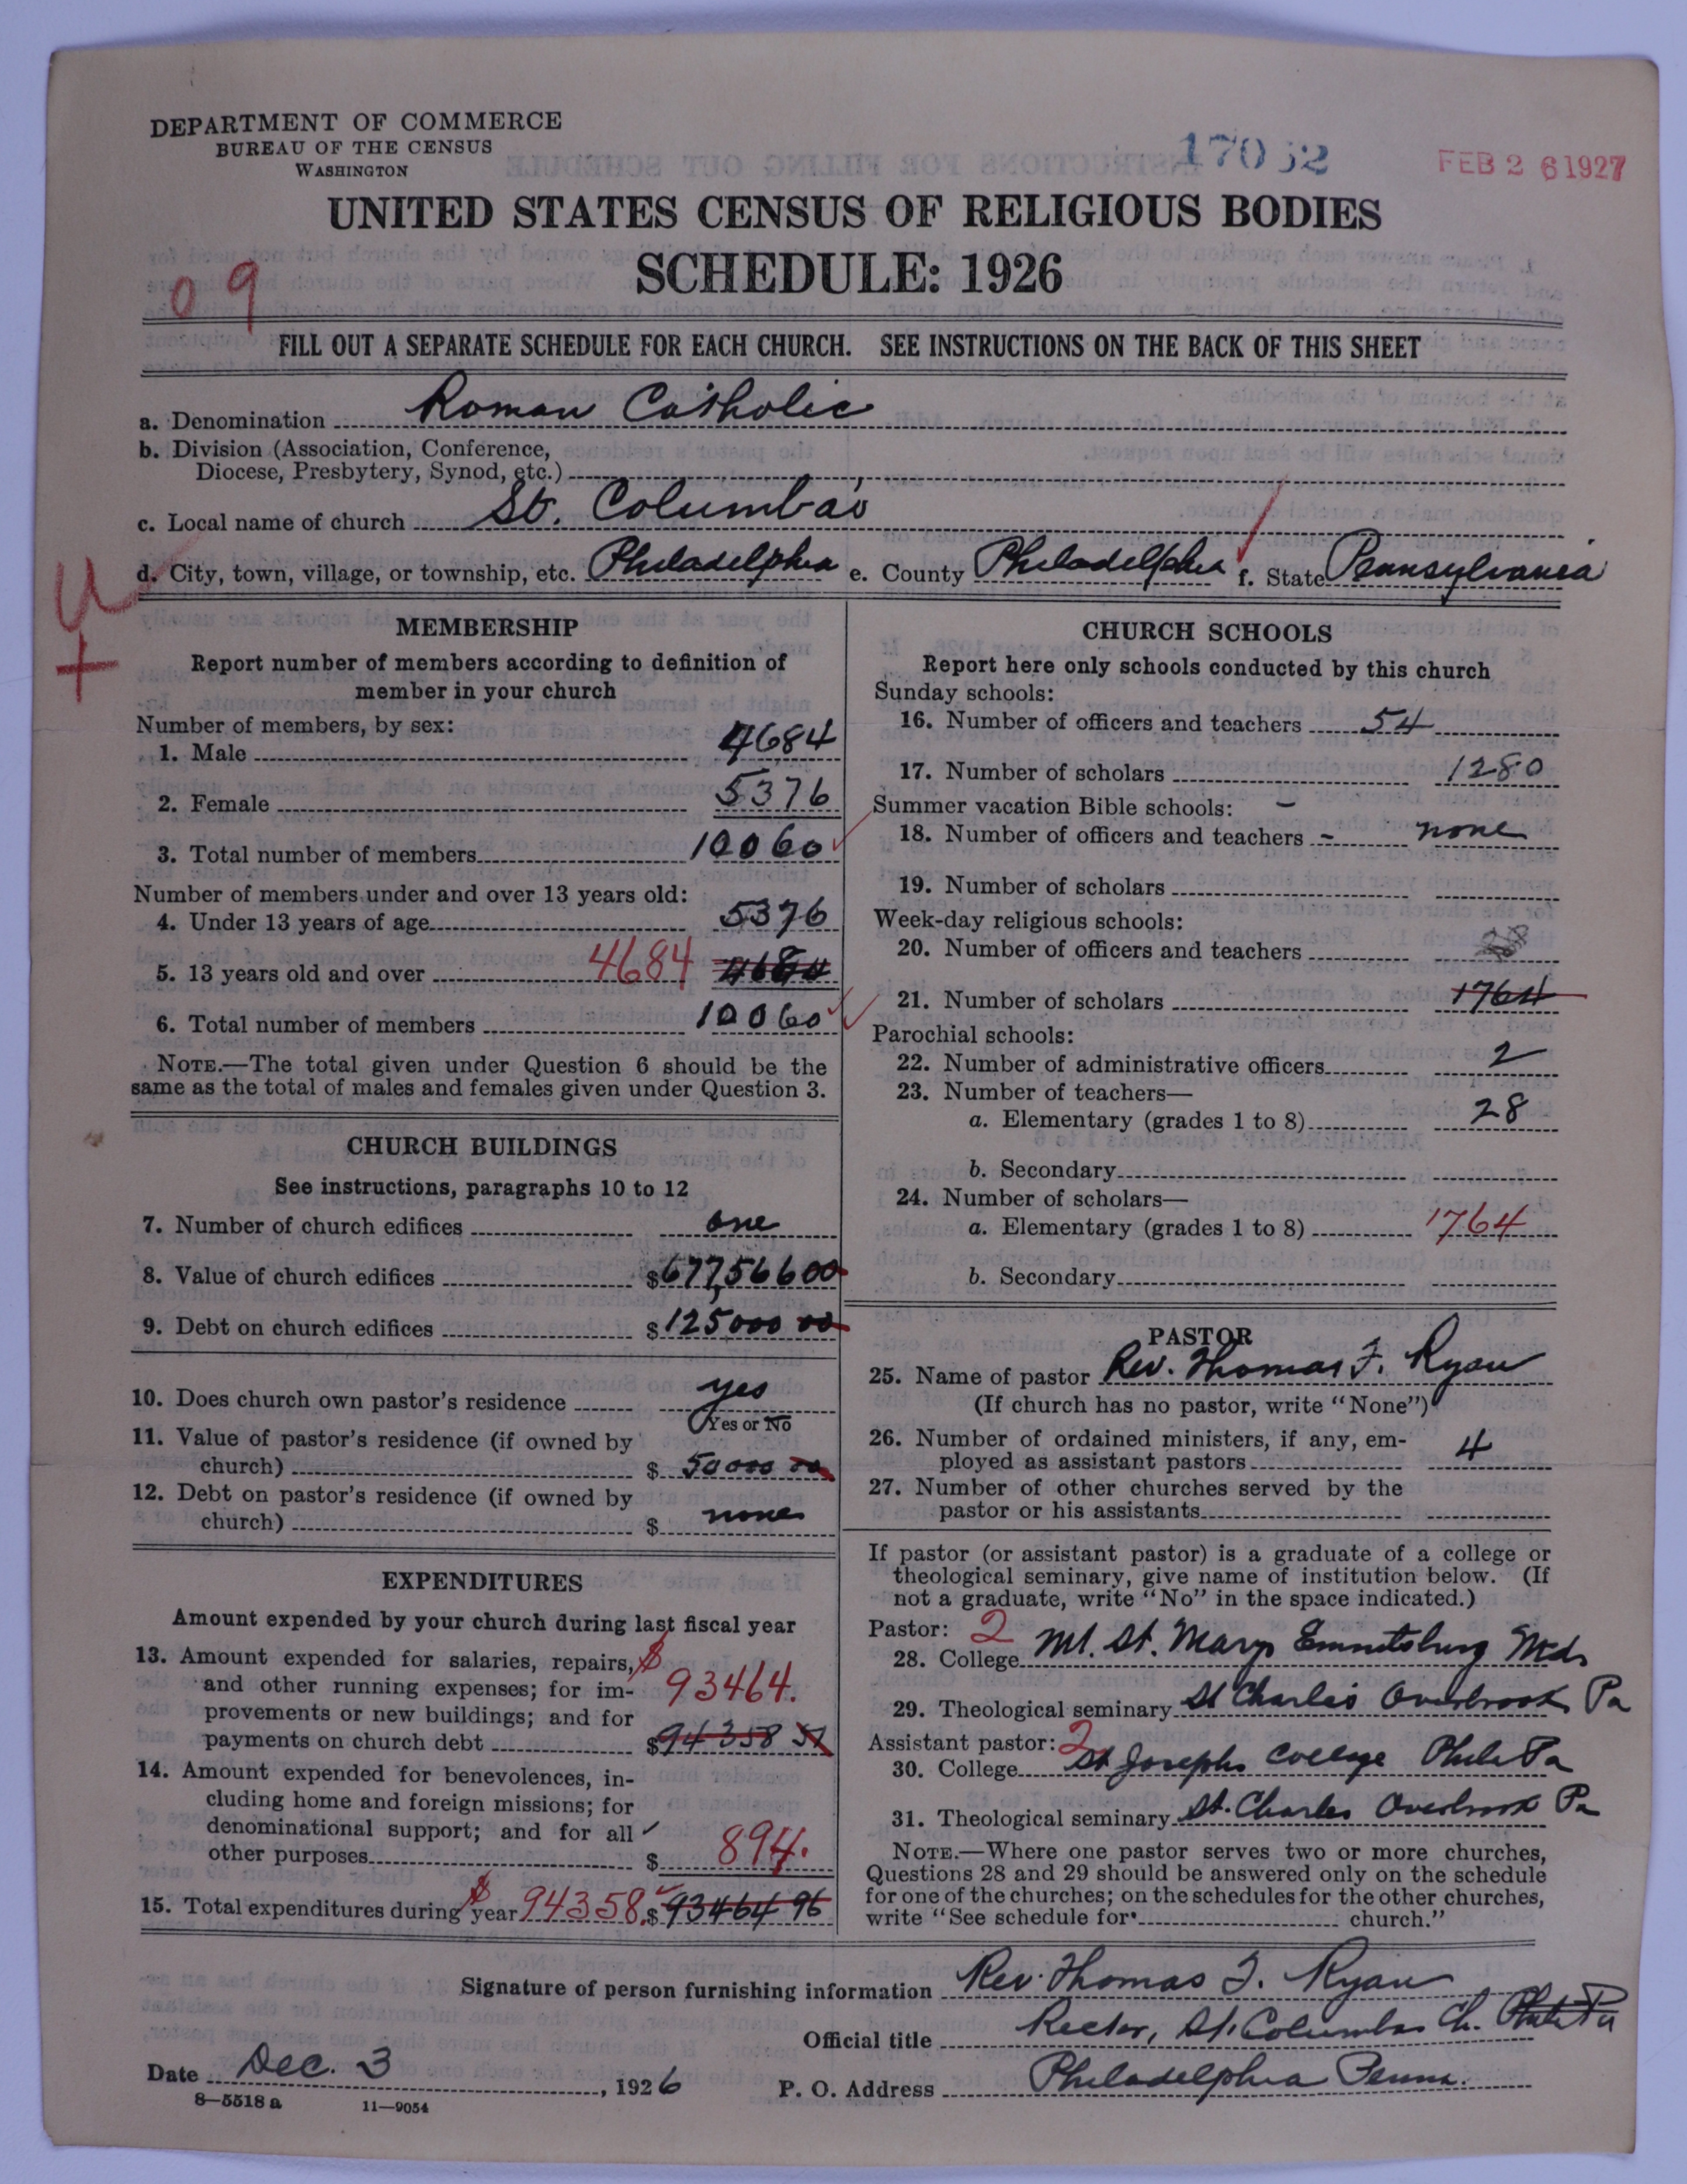 DEPARTMENT OF COMMERCE
BUREAU OF THE CENSUS
WASHINGTON
17052
FEB 26 1927
UNITED STATES CENSUS OF RELIGIOUS BODIES
SCHEDULE: 1926
09
FILL OUT A SEPARATE SCHEDULE FOR EACH CHURCH. SEE INSTRUCTIONS ON THE BACK OF THIS SHEET
a. Denomination Roman Catholic
b. Division (Association, Conference,
Diocese, Presbytery, Synod, etc.)
c. Local name of church St. Columba's
d. City, town, village, or township, etc. Philadelphia e. County Philadelphia f. State Pennsylvania
U
+
MEMBERSHIP
Report number of members according to definition of
member in your church
Number of members, by sex:
1. Male 4684
2. Female 5376
3. Total number of members 10060
Number of members under and over 13 years old:
4. Under 13 years of age 5376
5. 13 years old and over 4684 4684
6. Total number of members 10060
NOTE.—The total given under Question 6 should be the
same as the total of males and females given under Question 3.
CHURCH BUILDINGS
See instructions, paragraphs 10 to 12
7. Number of church edifices one
8. Value of church edifices $677566 00
9. Debt on church edifices $125000 00
10. Does church own pastor's residence yes
Yes or No
11. Value of pastor's residence (if owned by
church) $ 50000 00
12. Debt on pastor's residence (if owned by
church) $ none
EXPENDITURES
Amount expended by your church during last fiscal year
13. Amount expended for salaries, repairs, $
and other running expenses; for im- 93464.
provements or new buildings; and for
payments on church debt $94358 51
14. Amount expended for benevolences, in-
cluding home and foreign missions; for
denominational support; and for all
other purposes $ 894.
15. Total expenditures during year $ 94358. $93464 96
CHURCH SCHOOLS
Report here only schools conducted by this church
Sunday schools:
16. Number of officers and teachers 54
17. Number of scholars 1280
Summer vacation Bible schools: –
18. Number of officers and teachers - none
19. Number of scholars
Week-day religious schools:
20. Number of officers and teachers
21. Number of scholars 1764
Parochial schools:
22. Number of administrative officers 2
23. Number of teachers—
a. Elementary (grades 1 to 8) 28
b. Secondary
24. Number of scholars—
a. Elementary (grades 1 to 8) 1764
b. Secondary
PASTOR
25. Name of pastor Rev. Thomas F. Ryan
(If church has no pastor, write "None")
26. Number of ordained ministers, if any, em-
ployed as assistant pastors 4
27. Number of other churches served by the
pastor or his assistants
If pastor (or assistant pastor) is a graduate of a college or
theological seminary, give name of institution below. (If
not a graduate, write "No" in the space indicated.)
Pastor: 2
28. College Mt. St. Marys Emmitsburg Md.
29. Theological seminary St Charles Overbrook Pa
Assistant pastor: 2
30. College St Josephs College Phila Pa
31. Theological seminary St. Charles Overbrook Pa
NOTE.—Where one pastor serves two or more churches,
Questions 28 and 29 should be answered only on the schedule
for one of the churches; on the schedules for the other churches,
write "See schedule for church."
Signature of person furnishing information Rev. Thomas F. Ryan
Official title Rector, St. Columbas Ch. Phila Pa
Date Dec. 3, 1926 P. O. Address Philadelphia Penna.
8—5518 a 11—9054